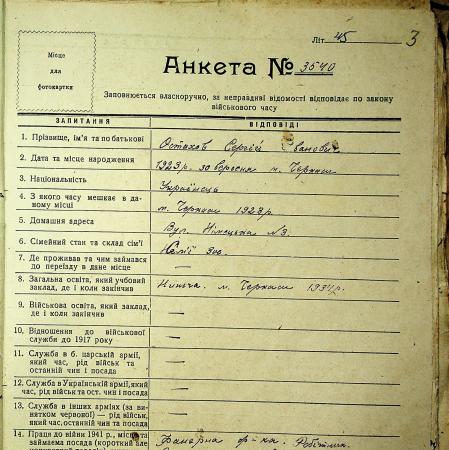 Літ. 45
3
Місце
для
фотокартки
Анкета № 3540
Заповнюється власноручно, за неправдиві відомості відповідає по закону
військового часу
ЗАПИТАННЯ
ВІДПОВІДІ
1. Прізвище, ім'я та по батькові
Сергій Іванович
2. Дата та місце народження
1923 р. 30 вересня м. Черкаси
3. Національність
Українець
4. З якого часу мешкає в даному місці
м. Черкаси 1923 р.
5. Домашня адреса
Вул. Німецька №3.
6. Сімейний стан та склад сім'ї
7. Де проживав та чим займався
до переїзду в дане місце
—
8. Загальна освіта, який учбовий
заклад, де і коли закінчив
Нижча. м. Черкаси 1937 р.
9. Військова освіта, який заклад,
де і коли закінчив
—
10. Відношення до військової
служби до 1917 року
—
11. Служба в б. царській армії,
який час, рід військ та
останній чин і посада
—
12. Служба в Українській армії, який
час, рід військ та ост. чин і посада
—
13. Служба в інших арміях (за ви-
нятком червоної) — рід військ,
який час, останній чин та посада
—
14. Праця до війни 1941 р., місце та
займаєма посада (короткий але
Фанерна ф-ка. Робітник.